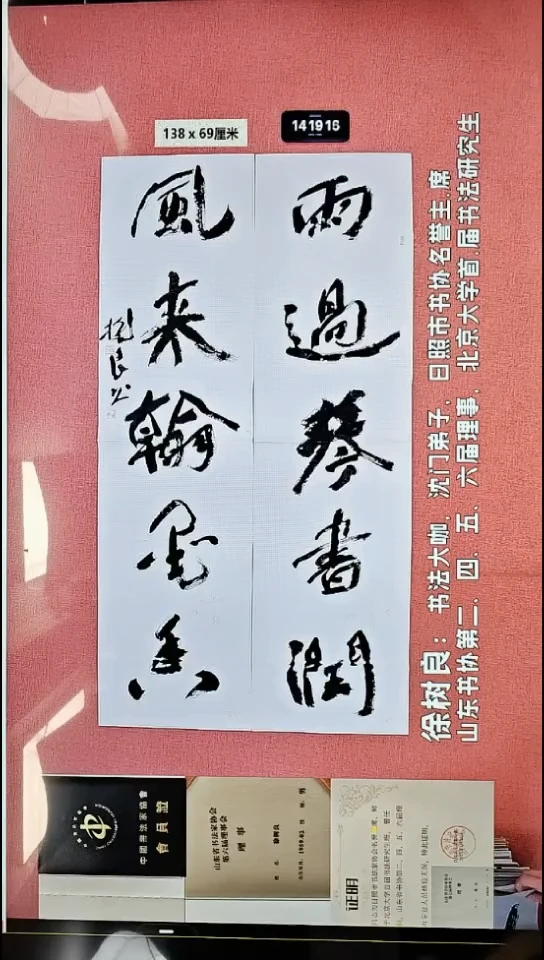 138 x 69厘米
14 19 16
雨過琴書潤
風来翰墨香
樹良书
徐树良：书法大咖，沈门弟子，日照市书协名誉主席
山东书协第二、四、五、六届理事，北京大学首届书法研究生
中國書法家協會
會員證
山东省书法家协会
第六届理事会
理事
证明